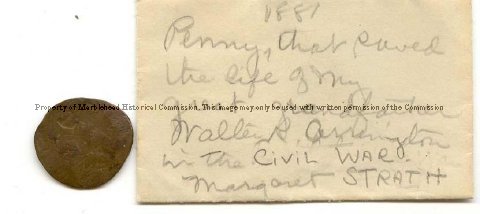 1881
Penny, that saved
the life of my
Property of Marblehead Historical Commission. This image may only be used with written permission of the Commission
great
in the CIVIL WAR.
Margaret STRATH